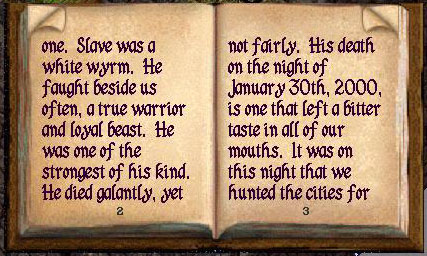 one. Slave was a
white wyrm. He
faught beside us
often, a true warrior
and loyal beast. He
was one of the
strongest of his kind.
He died galantly, yet
2
not fairly. His death
on the night of
January 30th, 2000,
is one that left a bitter
taste in all of our
mouths. It was on
this night that we
hunted the cities for
3